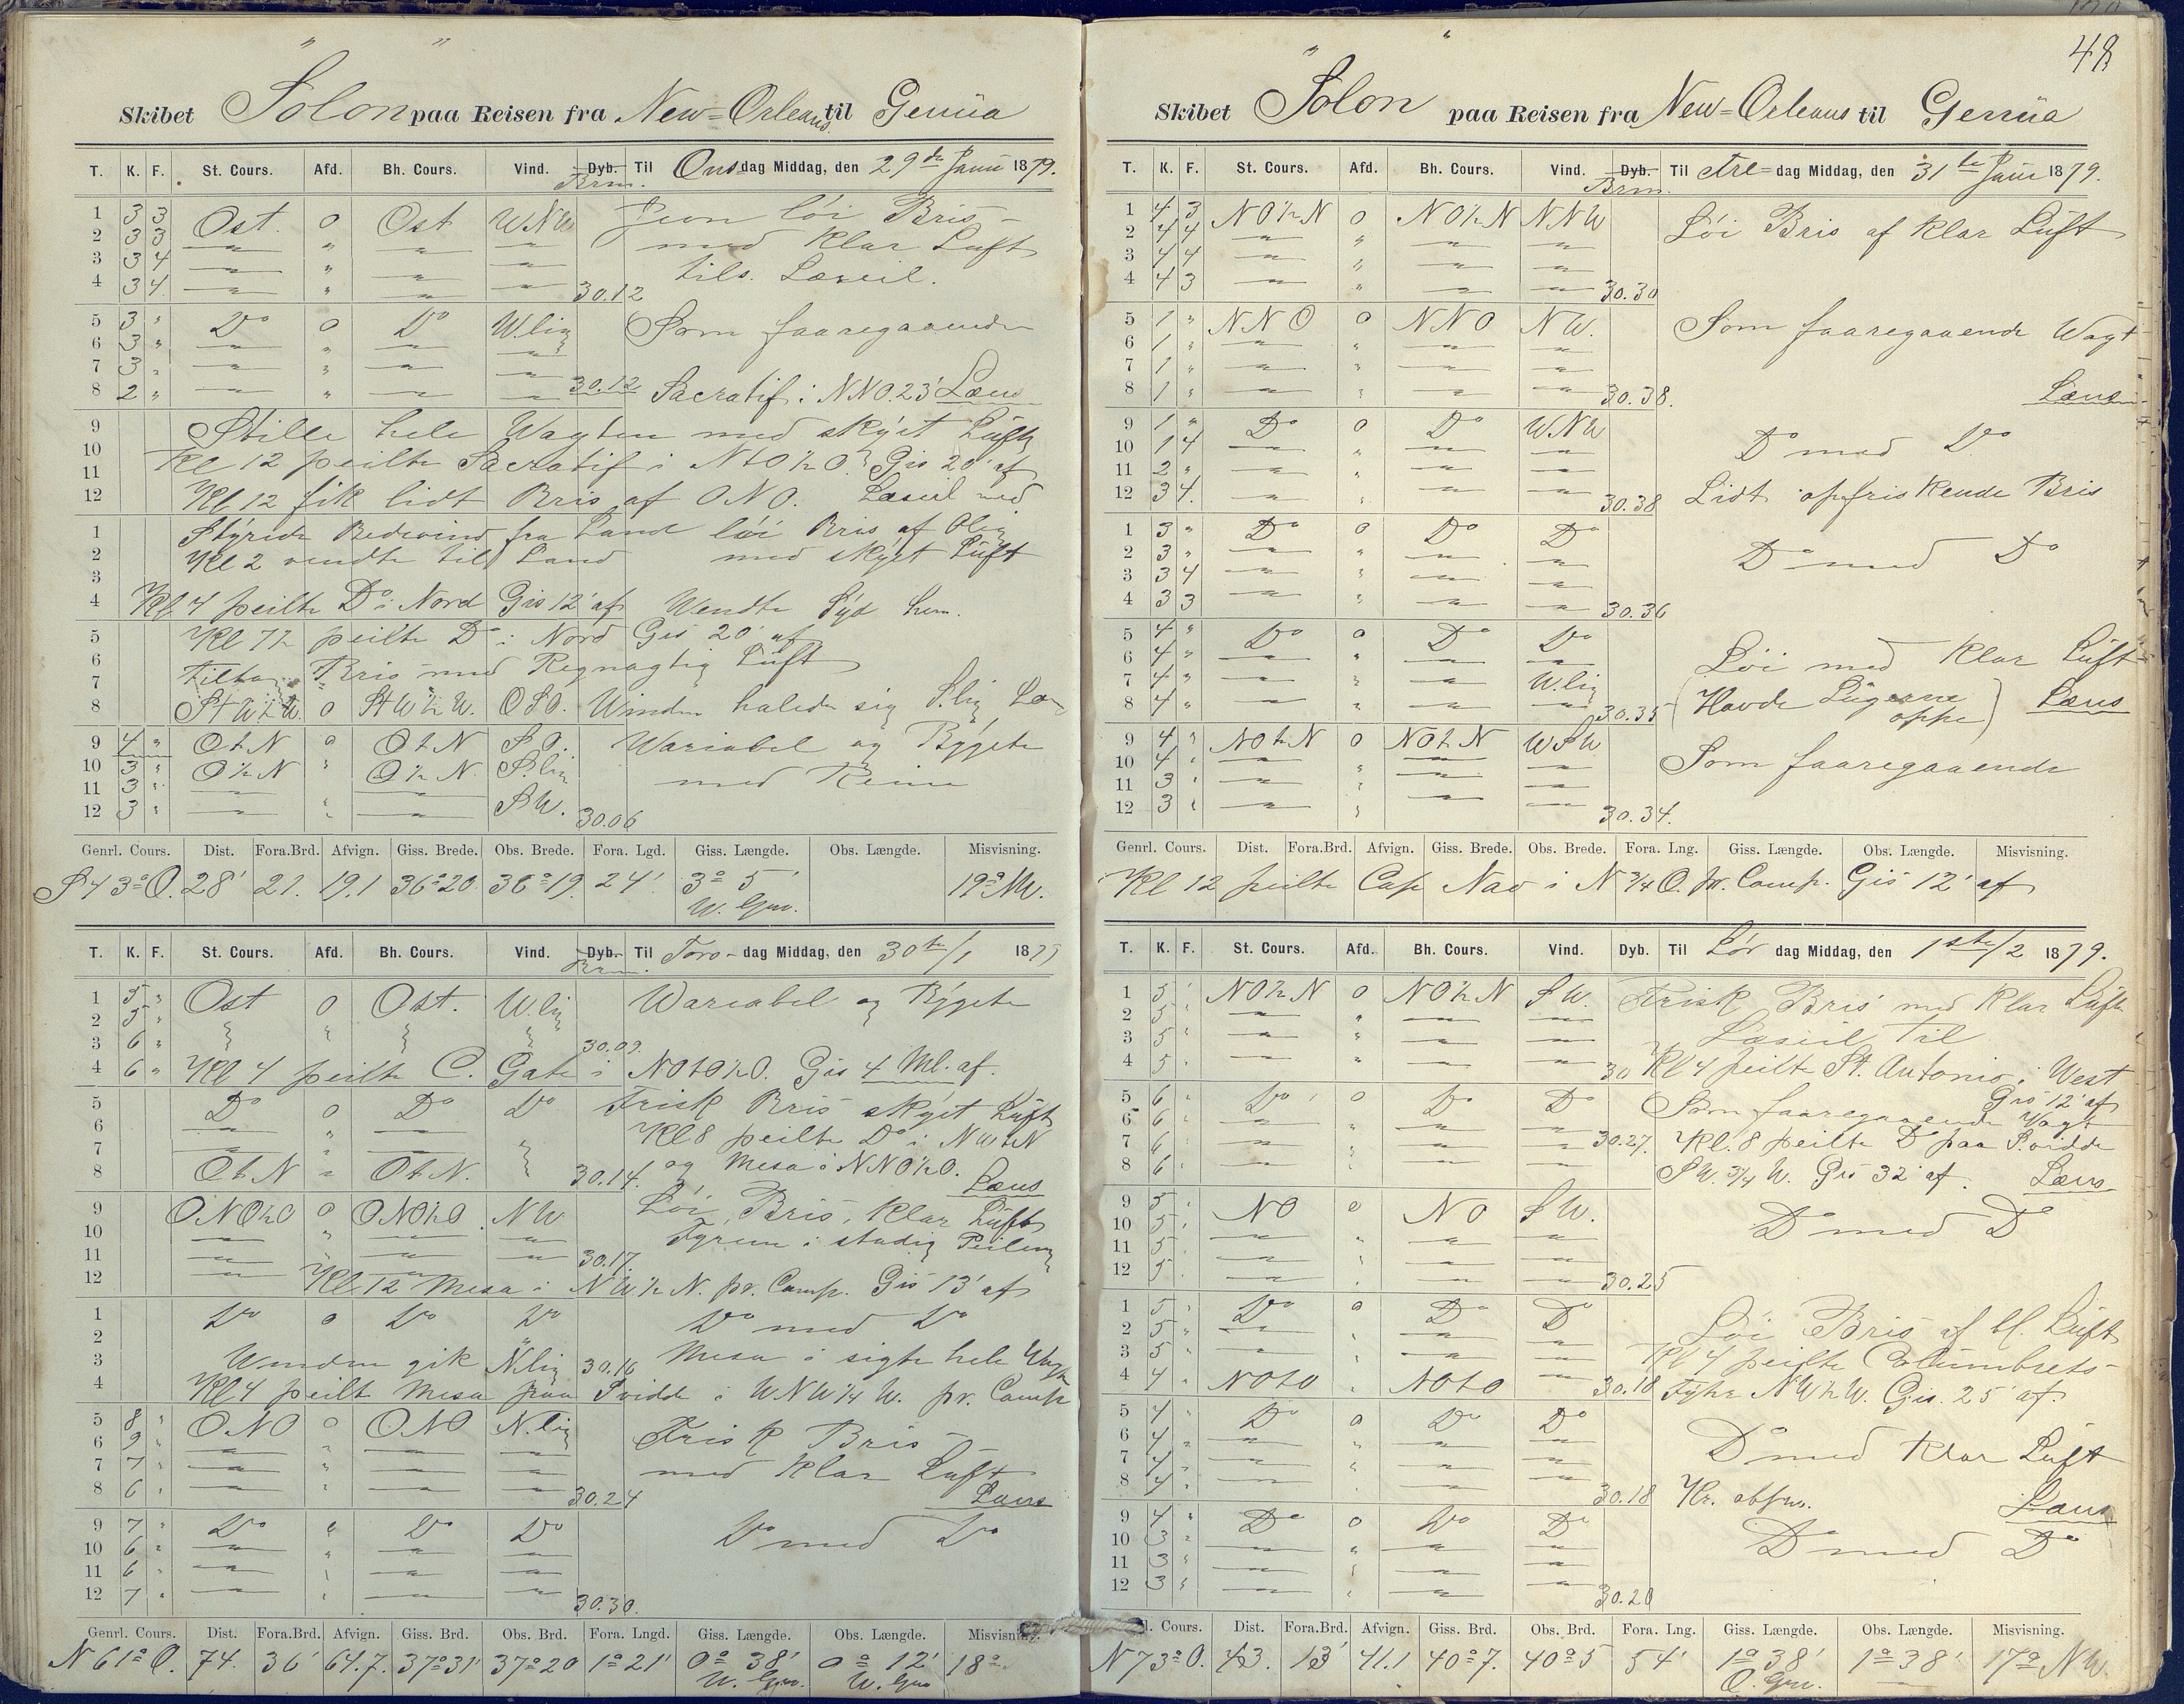 Skibet Solon paa Reisen fra New=Orleans til Genüa
T. K. F. St. Cours. Afd. Bh. Cours. Vind. Dyb. Til Onsdag Middag, den 29de Janu 1879.
Brm.
1 3 3 Ost. 0 Ost WNW Jevn löi Bris
2 3 3 med Klar Luft
3 3 4 tils. Læseil.
4 3 4 30.12
5 3 " Do 0 Do W.lig Som faaregaaende
6 3 "
7 3 "
8 2 " 30.12 Sacratif i NNO.23' Læns
9 Stille hele Wagten med skÿet Lüft
10 Kl 12 peilte Sacratif i NtO½O. Gis 20' af
11
12 Kl 12 fik lidt Bris af ONO. Læseil ned
1 Stÿrede Bidevind fra Land löi Bris af Olig
2 Kl 2 vendte til Land med skÿet Lüft
3
4 Kl 4 peilte Do i Nord Gis 12' af Wendte Sÿd
5 Kl 7½ peilte Do i Nord Gis 20' af
6 Bris med Regnagtig Lüft
7
8 StW½W. 0 StW½W. OSO. Winden halede sig S.lig
9 4 " OtN 0 OtN S.O. Wariabel og Bÿgete
10 3 " O½N " O½N S.lig med
11 3 "
12 3 " SW. 30.06
Genrl. Cours. Dist. Fora.Brd. Afvign. Giss. Brede. Obs. Brede. Fora. Lgd. Giss. Længde. Obs. Længde. Misvisning.
S 43° O. 28' 21. 19,1 36°20 36°19. 24' 3° 5' 19° NW.
W. Grw.
T. K. F. St. Cours. Afd. Bh. Cours. Vind. Dyb. Til Tors-dag Middag, den 30te/1 1879
Brm.
1 5 " Ost 0 Ost. W.lig Wariabel og Bÿgete
2 5 "
3 6 " 30.09.
4 6 " Kl 4 peilte C. Gate i NOtO½O. Gis 4 Ml. af.
5 Do 0 Do Do Frisk Bris skÿet Lüft
6 Kl 8 peilte Do i NWtN
7 og Mesa i NNO½O.
8 OtN " OtN. 30.14. Læns
9 ONO½O 0 ONO½O NW Löi Bris, Klar Lüft
10 Fyrene i stadig Peiling
11 30.17.
12 Kl 12 Mesa i NW½N. pr. Comp. Gis 13' af
1 Do 0 Do Do Do med Do
2
3 Winden gik N.lig 30.16 Mesa i sigte hele Wagten
4 Kl 4 peilt Mesa paa Svidde i WNW¼W. pr. Comp
5 8 " ONO 0 ONO N.lig Frisk Bris
6 9 "
7 7 " med Klar Luft
8 6 " 30.24 Læns
9 7 " Do " Do Do Do med Do
10 6 "
11 6 "
12 7 " 30.30.
Genrl. Cours. Dist. Fora.Brd. Afvign. Giss. Brd. Obs. Brd. Fora. Lngd. Giss. Længde. Obs. Længde. Misvisning.
N 61° O. 74. 36' 64.7. 37°31' 37°20 1°21' 0° 38' 0° 12' 18°
W. Grw. W. Grw
48
Skibet Solon paa Reisen fra New=Orleans til Genüa
T. K. F. St. Cours. Afd. Bh. Cours. Vind. Dyb. Til Fre=dag Middag, den 31te Janu 1879.
Brm.
1 4 3 NO½N 0 NO½N NNW Löi Bris af Klar Lüft
2 4 4
3 4 4
4 4 3 30.30
5 1 " NNO 0 NNO NW. Som faaregaaende Wagt
6 1 "
7 1 "
8 1 " 30.38. Læns
9 1 " Do 0 Do WNW Do med Do
10 1 4
11 2 "
12 3 4. 30.38 Lidt opfriskende Bris
1 3 " Do 0 Do Do Do med Do
2 3 "
3 3 4
4 3 3 30.36
5 4 " Do 0 Do Do Löi med Klar Lüft
6 4 "
7 4 " W.lig (Havde Lügerne oppe)
8 4 " 30.35 Læns
9 4 " NOtN 0 NOtN WSW Som faaregaaende
10 4 "
11 3 "
12 3 " 30.34.
Genrl. Cours. Dist. Fora.Brd. Afvign. Giss. Brede. Obs. Brede. Fora. Lng. Giss. Længde. Obs. Længde. Misvisning.
Kl 12 peilte Cap Nao i N¾O. pr. Comp. Gis 12' af
T. K. F. St. Cours. Afd. Bh. Cours. Vind. Dyb. Til Lör dag Middag, den 1ste/2 1879.
1 5 " NO½N 0 NO½N SW. Frisk Bris med Klar Lüft
2 5 " Læseil til
3 5 "
4 5 " 30 Kl 4 peilte St. Antonio i West
Gis 12' af
5 6 " Do 0 Do Do Som faaregaaende Vagt
6 6 "
7 6 " 30.27. Kl. 8 peilte Do paa Svidde
8 6 " SW.¾W. Gis 32' af. Læns
9 5 " NO 0 NO SW. Do med Do
10 5 "
11 5 "
12 5 " 30.25
1 5 " Do 0 Do Do Löi Bris af bl. Lüft
2 5 "
3 5 " Kl 4 peilte Columbrets
4 4 " NOtO " NOtO 30.18 Fÿhr NW½W. Gis. 25' af.
5 4 " Do 0 Do Do Do med Klar Luft
6 4 "
7 4 "
8 4 " 30.18 Læns
9 4 " Do 0 Do Do Do med Do
10 3 "
11 3 "
12 3 " 30.20
l. Cours. Dist. Fora.Brd. Afvign. Giss. Brd. Obs. Brd. Fora. Lng. Giss. Længde. Obs. Længde. Misvisning.
N 73° O. 43. 13' 41.1 40°7. 40°5 54' 1°38' 1°38' 17° NW.
O. Grw.